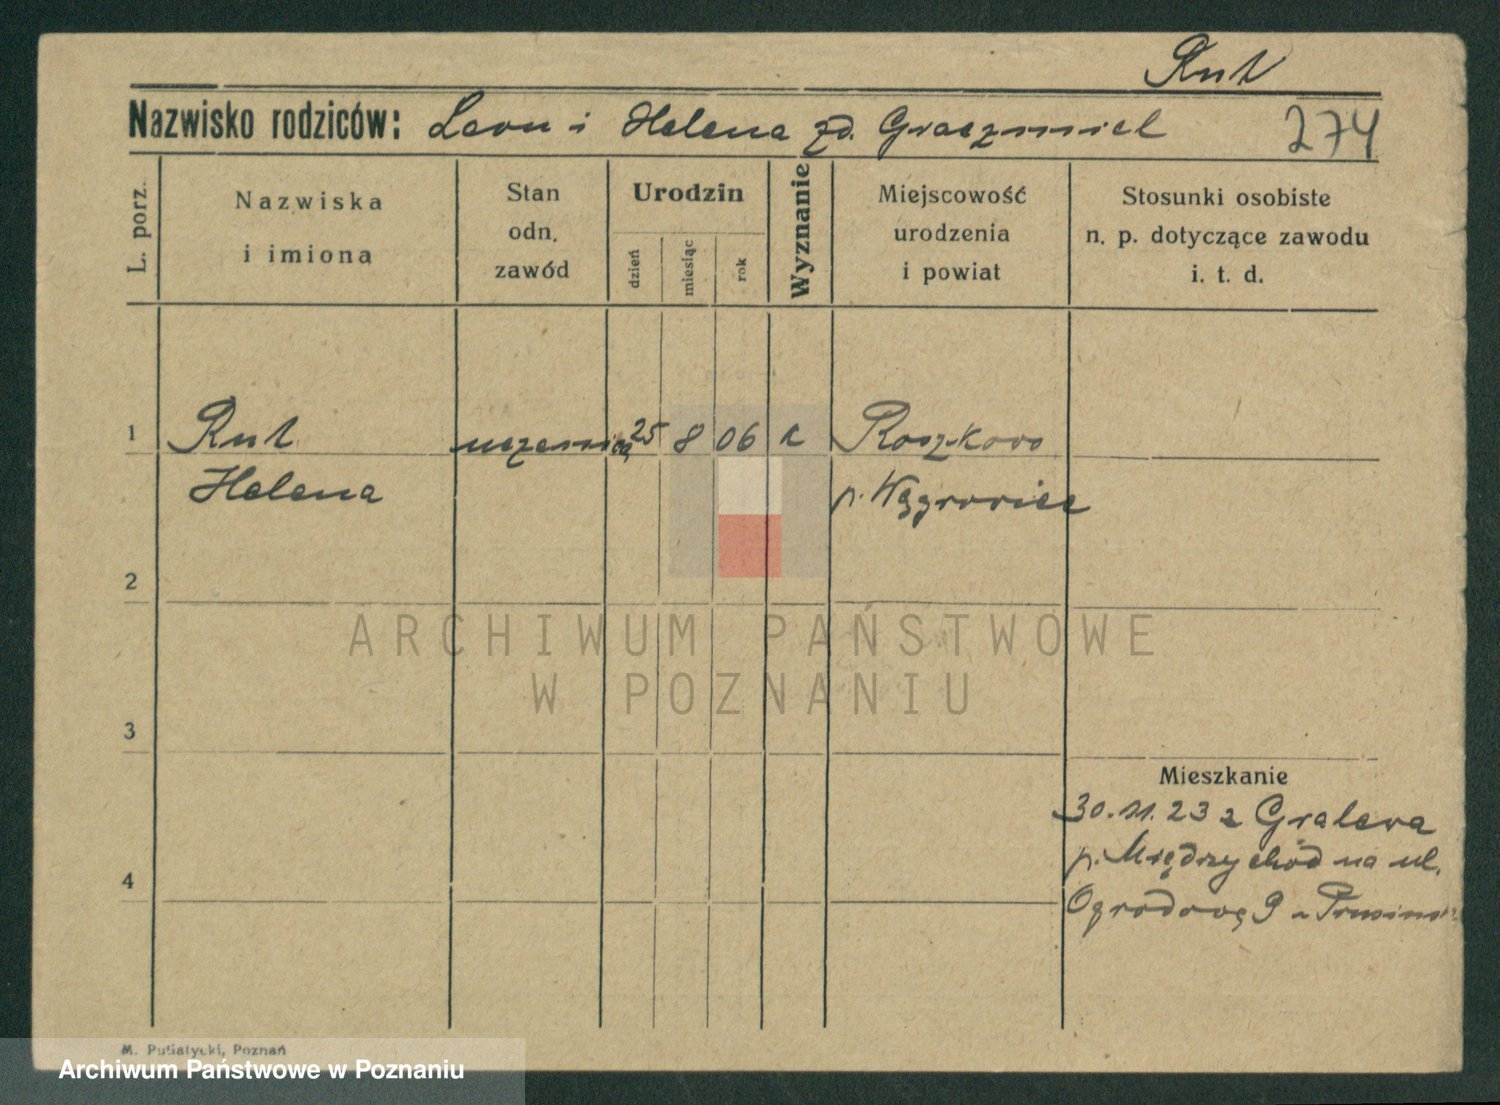 Rut
Nazwisko rodziców: Leon i Helena zd. Graczmiel 274
L. porz.
Nazwiska
i imiona
Stan
odn.
zawód
Urodzin
dzień
miesiąc
rok
Wyznanie
Miejscowość
urodzenia
i powiat
Stosunki osobiste
n. p. dotyczące zawodu
i. t. d.
1 Rut uczennica 25 8 06 k Roszkowo
Helena p. Wągrowiec
2
ARCHIWUM PAŃSTWOWE
W POZNANIU
3
Mieszkanie
30.11.23 z Gralewa
p. Międzychód na ul.
4
Ogrodową 9 u
M. Putiatycki, Poznań
Archiwum Państwowe w Poznaniu